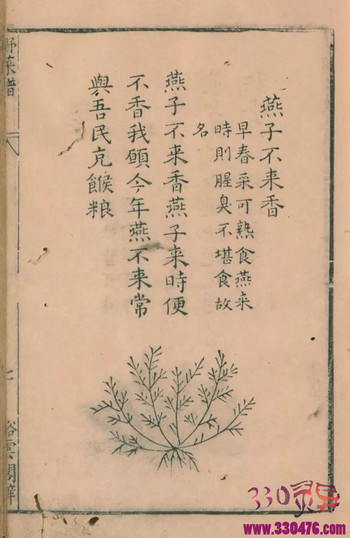 燕子不来香
早春采可熟食燕来
时則腥臭不堪食故
名
燕子不来香燕子来時便
不香我願今年燕不来常
與吾民充餱粮
野菜譜
七
330
www.330476.com